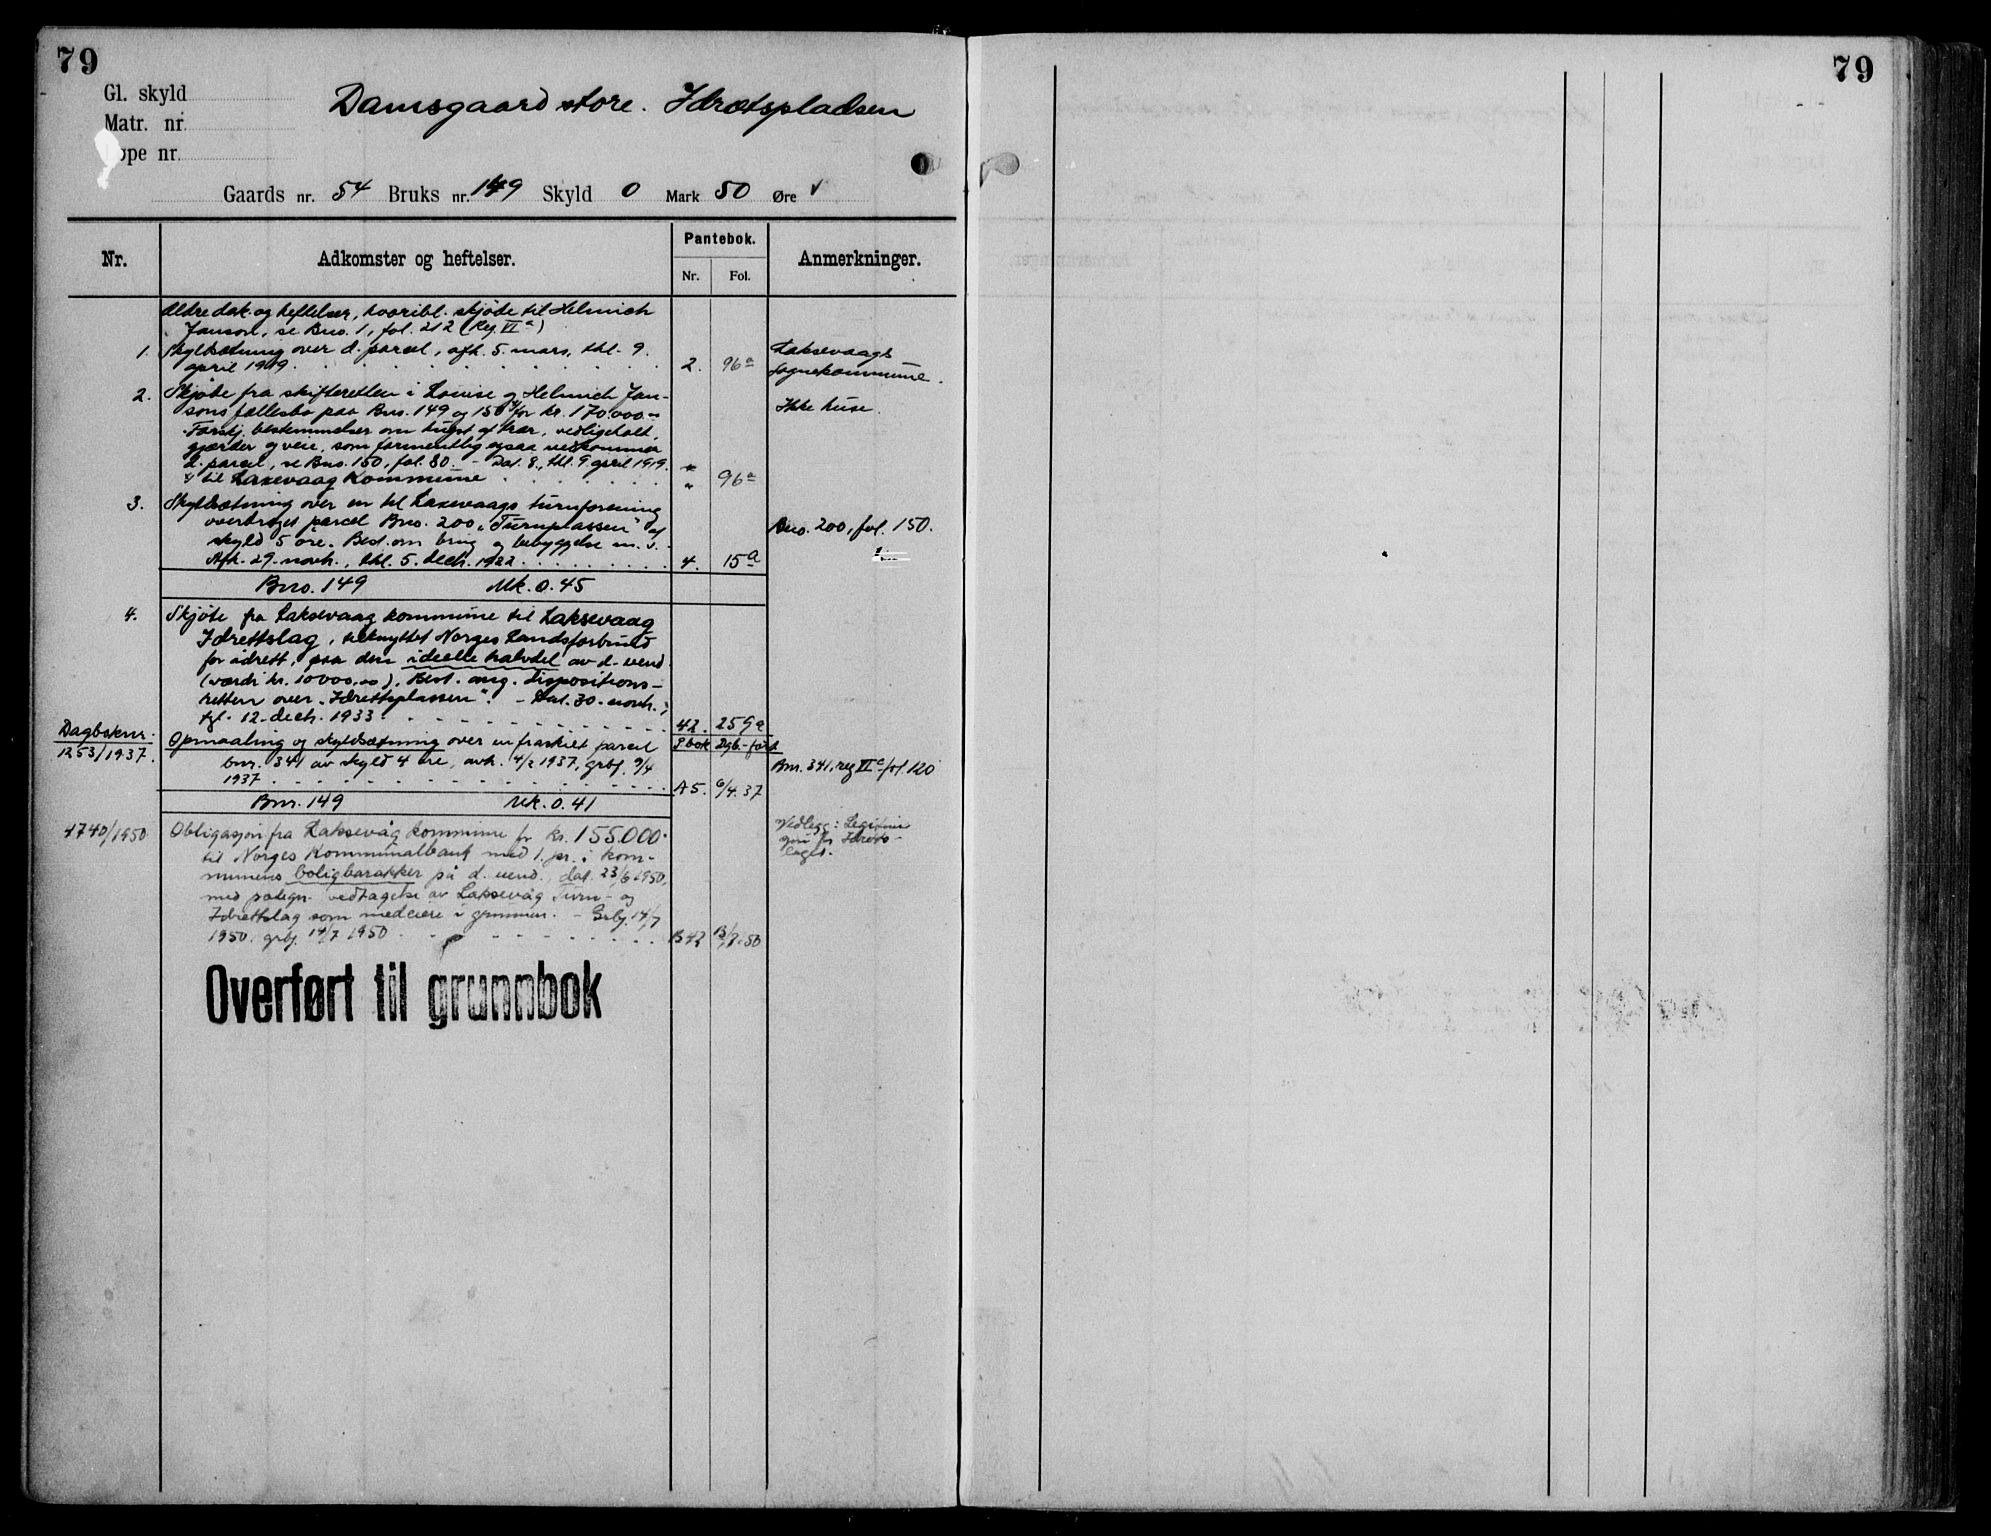 79
79
Gl. skyld
Matr. nr.
ppe nr.
Damsgaard store. Idrætspladsen
Gaards nr. 54 Bruks nr. 149 Skyld 0 Mark 50 Øre
Nr.
Adkomster og heftelser.
Pantebok.
Nr.
Fol.
Anmerkninger.
Ældre dok. og heftelser, hvoribl. skjöde til Helmich
Janson, se Bno. 1, fol. 212 (Reg. II a)
1. Skyldsætning over d. parcel, afh. 5. mars, thl. 9.
april 1919. 2. 96a
Laksevaags
sognekommune.
2. Skjöde fra skifteretten i Louise og Helmich Jan-
sons fællesbo paa Bno. 149 og 150 for kr. 170.000.-
Forskj. bestemmelser om hugst af trær, vedligehold.
gjærder og veie, som formentlig ogsaa vedkommer
d. parcel, se Bno. 150, fol. 80. - Dat. 8., thl. 9. april 1919.
til Laxevaag Kommune " 96a
Ikke huse.
3. Skyldsætning over en til Laxevaags turnforening
overdraget parcel Bno. 200 "Turnplassen" af
skyld 5 øre. Best. om brug og bebyggelse m. v.
Afh. 29. novb., thl. 5. decb. 1922 4. 15a
Bno. 200, fol. 150.
Bno. 149 Mk. 0.45
4. Skjöte fra Laksevaag kommune til Laksevaag
Idrettslag, tilknyttet Norges Landsforbund
for idrett, paa den ideelle halvdel av d. eiend.
(værdi kr. 10000,00). Best. ang. dispositions-
retten over "Idrettsplassen". - Dat. 30. novb.,
tgl. 12. decb. 1933. 42. 259a
Dagboknr.
1253/1937.
P.bok Dgb.-ført
Opmaaling og skyldsætning over en fraskilt parcel
bnr. 341 av skyld 4 øre, avh. 4/2 1937, grbf. 9/4
1937 A5. 6/4.37
Bnr. 341, reg II a fol. 120
Bnr. 149 Mk. 0.41
1740/1950 Obligasjon fra Laksevåg kommune for kr. 155.000.-
til Norges Kommunalbank med 1. pr. i kom-
munens boligbarakker på d. eiend., dat. 23/6 1950,
med påtegn. vedtagelse av Laksevåg Turn- og
Idrettslag som medeiere i grunnen. - Grbf. 14/7
1950. grbf. 14/7 1950 B42 13/7.50
Vedlegg: Legitima
sjon for Idretts-
laget.
Overført til grunnbok